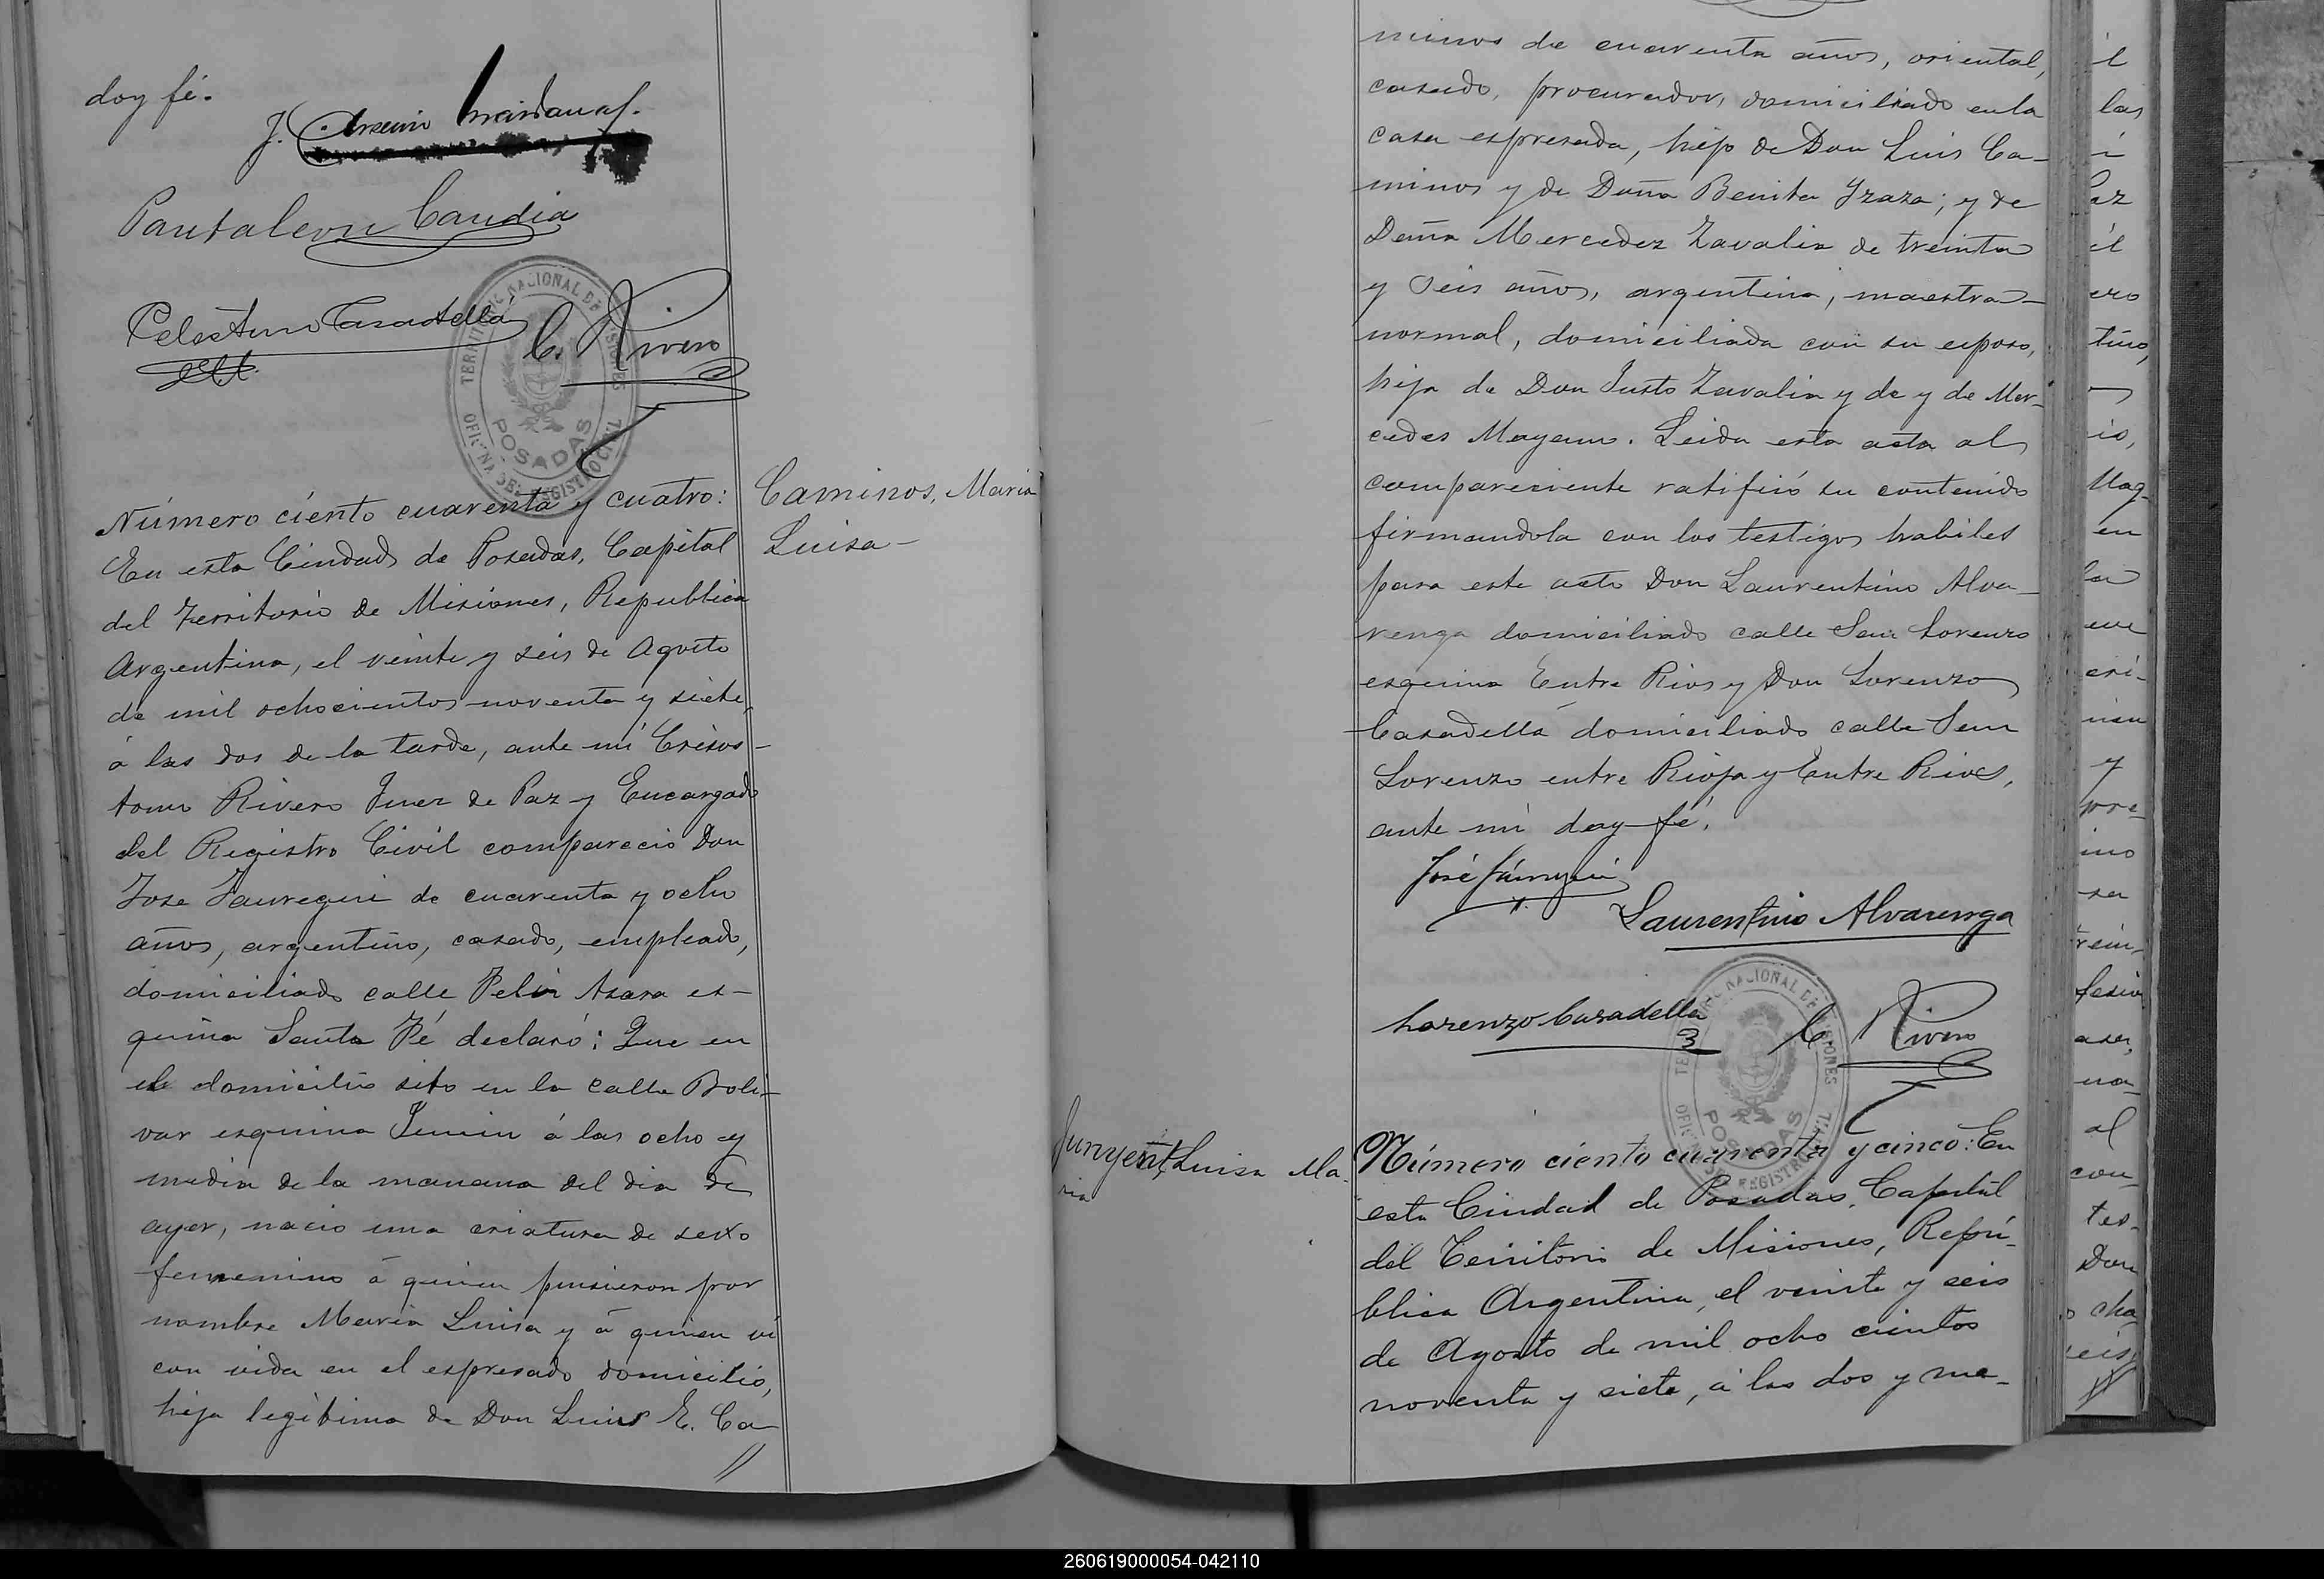 doy fé.
Pantaleon Candia
Celestino Casadellá
C. Rivero
TERRITORIO NACIONAL DE MISIONES
POSADAS
OFICINA DEL REGISTRO CIVIL
Caminos, Maria
Luisa-
Número ciento cuarenta y cuatro:
En esta Ciudad de Posadas, Capital
del Territorio de Misiones, Republica
Argentina, el veinte y seis de Agosto
de mil ochocientos noventa y siete,
á las dos de la tarde, ante mí Crisos-
tomo Rivero Juez de Paz y Encargado
del Registro Civil compareció Don
Jose Jauregui de cuarenta y ocho
años, argentino, casado, empleado,
domiciliado calle Felix Azara es-
quina Santa Fé declaró: Que en
el domicilio sito en la calle Boli-
var esquina Junin á las ocho y
media de la manana del dia de
ayer, nacio una criatura de sexo
femenino á quien pusieron por
nombre Maria Luisa y á quien ví
con vida en el espresado domicilio,
hija legítima de Don Luis E. Ca-
//
minos de cuarenta años, oriental,
casado, procurador, domiciliado en la
casa espresada, hijo de Don Luis Ca-
minos y de Doña Benita Yzaza; y de
Doña Mercedez Zavalia de treinta
y seis años, argentina, maestra
normal, domiciliada con su esposo,
hija de Don Justo Zavalia y de y de Mer-
cedes Moyano. Leida esta acta al
compareciente ratificó su contenido
firmandola con los testigos habiles
para este acto Don Laurentino Alva-
renga domiciliado calle San Lorenzo
esquina Entre Rios y Don Lorenzo
Casadellá domiciliado calle San
Lorenzo entre Rioja y Entre Rios,
ante mi doy fé.
José Jáuregui
Laurentino Alvarenga
Lorenzo Casadella
C. Rivero
TERRITORIO NACIONAL DE MISIONES
POSADAS
OFICINA DEL REGISTRO CIVIL
Junyent, Luisa Ma-
ria
Número ciento cuarenta y cinco: En
esta Ciudad de Posadas, Capital
del Territorio de Misiones, Repú-
blica Argentina, el veinte y seis
de Agosto de mil ocho cientos
noventa y siete, á las dos y me-
260619000054-042110